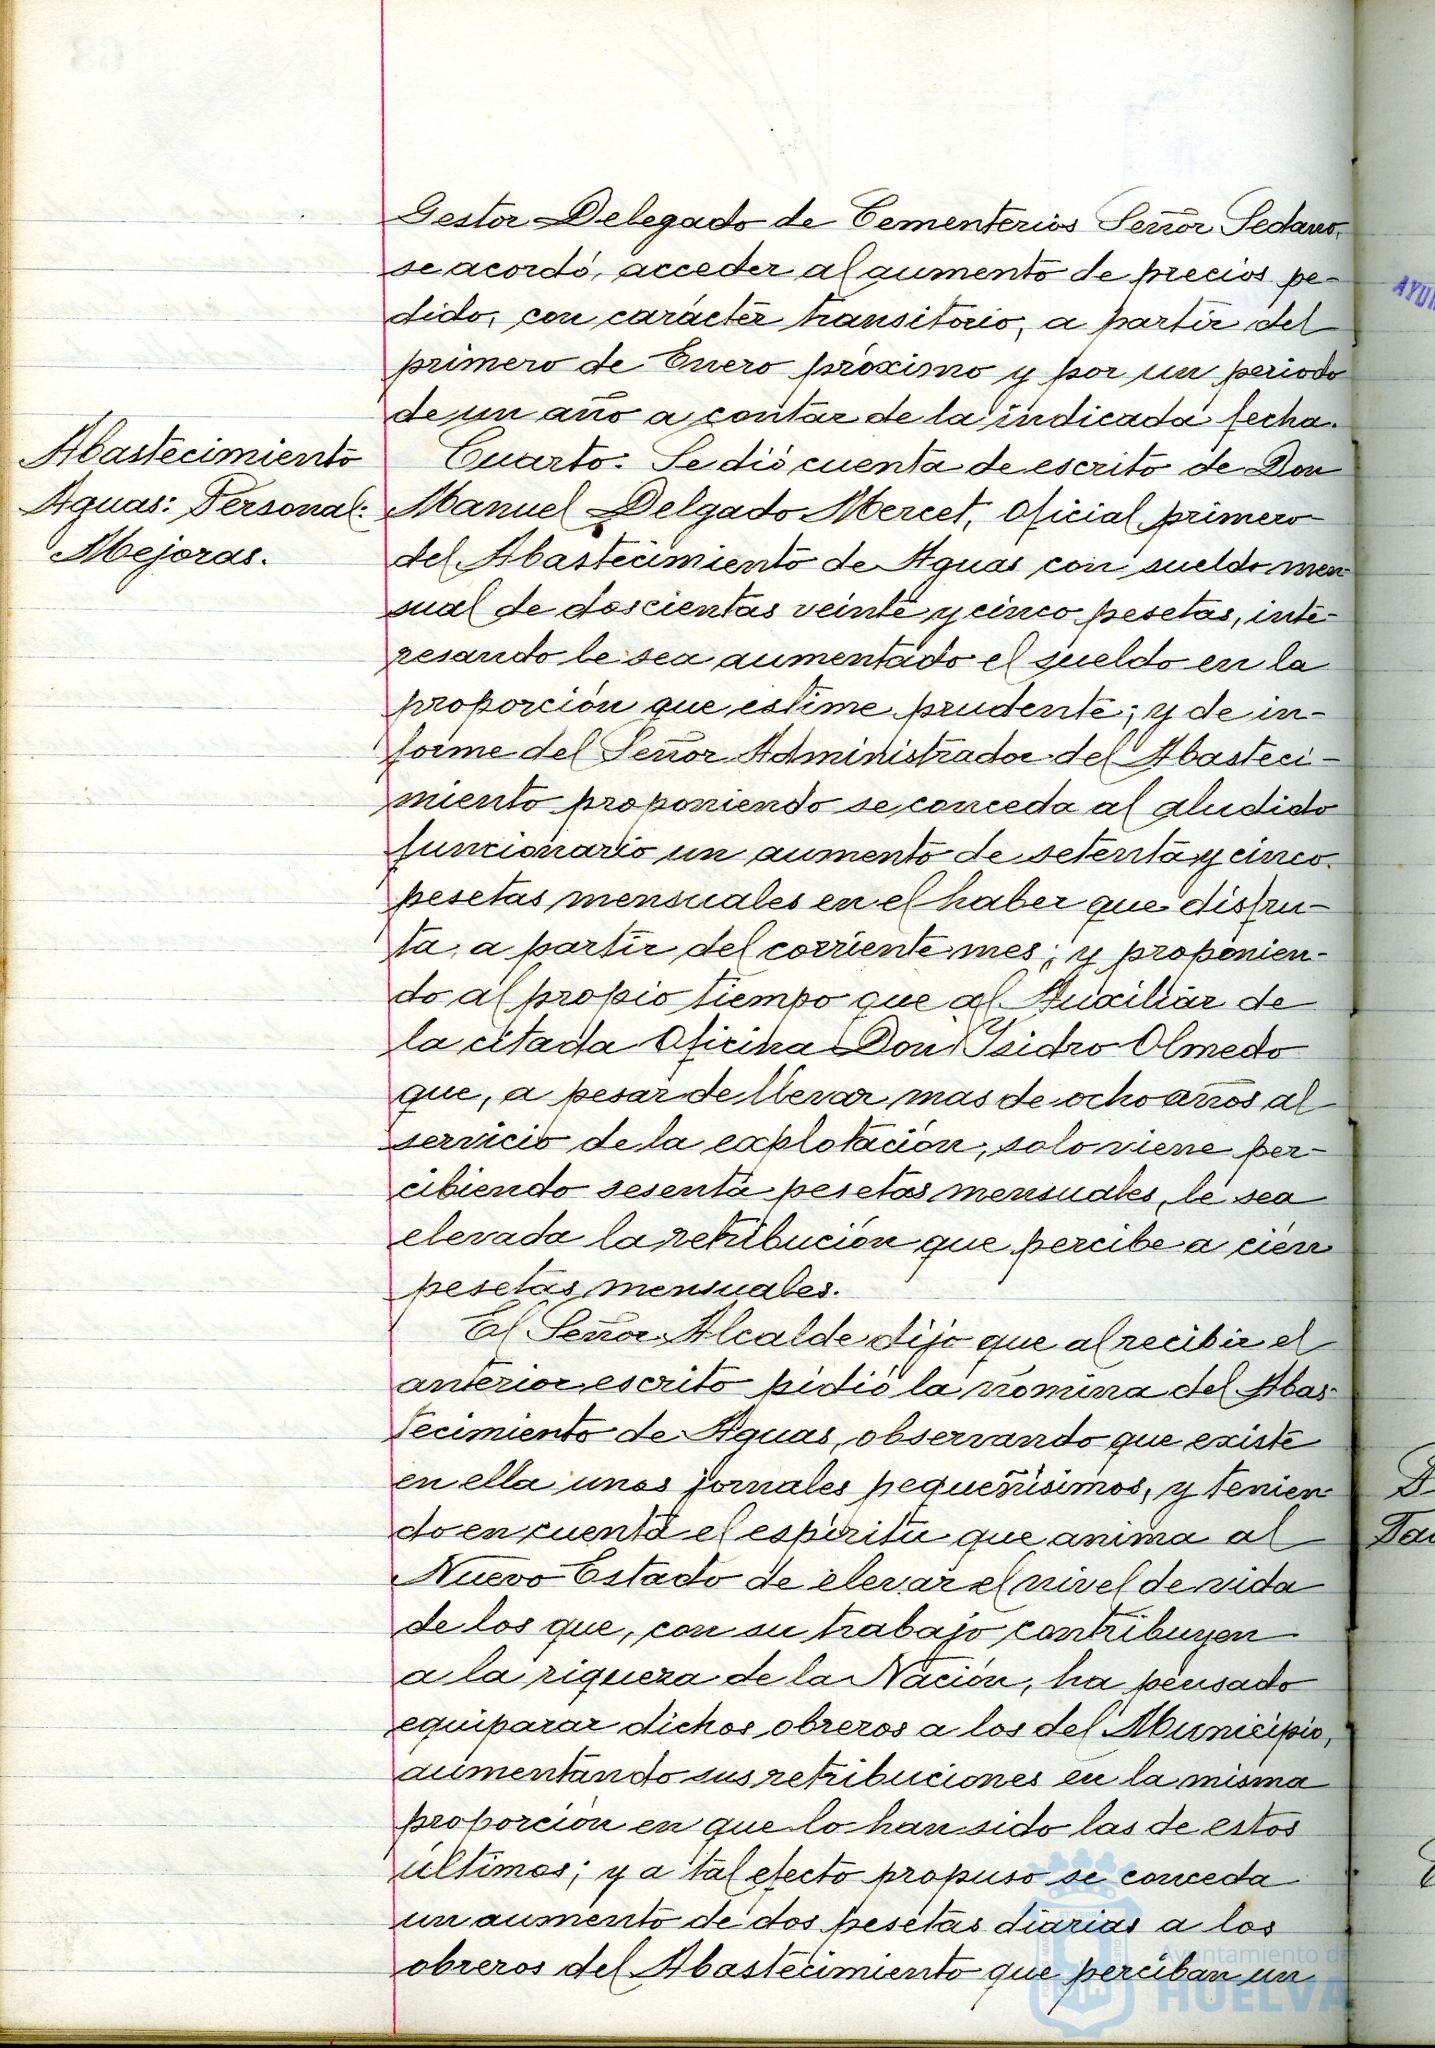 Gestor Delegado de Cementerios Señor Sedano,
se acordó, acceder al aumento de precios pe-
dido, con carácter transitorio, a partir del
primero de Enero próximo y por un periodo
de un año a contar de la indicada fecha.
Abastecimiento
Aguas: Personal:
Mejoras.
Cuarto. Se dió cuenta de escrito de Don
Manuel Delgado Mercet, oficial primero
del Abastecimiento de Aguas con sueldo men
sual de doscientas veinte y cinco pesetas, inte-
resando le sea aumentado el sueldo en la
proporción que estime prudente; y de in-
forme del Señor Administrador del Abasteci-
miento proponiendo se conceda al aludido
funcionario un aumento de setenta y cinco
pesetas mensuales en el haber que disfru-
ta, a partir del corriente mes; y proponien-
do al propio tiempo que al Auxiliar de
la citada Oficina Don Isidro Olmedo
que, a pesar de llevar mas de ocho años al
servicio de la explotación, solo viene per-
cibiendo sesenta pesetas mensuales, le sea
elevada la retribución que percibe a cien
pesetas mensuales.
El Señor Alcalde dijo que al recibir el
anterior escrito pidió la nómina del Abas-
tecimiento de Aguas, observando que existe
en ella unos jornales pequeñísimos, y tenien
do en cuenta el espíritu que anima al
Nuevo Estado de elevar el nivel de vida
de los que, con su trabajo contribuyen
a la riqueza de la Nación, ha pensado
equiparar dichos obreros a los del Municipio,
aumentando sus retribuciones en la misma
proporción en que lo han sido las de estos
últimos; y a tal efecto propuso se conceda
un aumento de dos pesetas diarias a los
obreros del Abastecimiento que perciban un
Ayuntamiento de
HUELVA